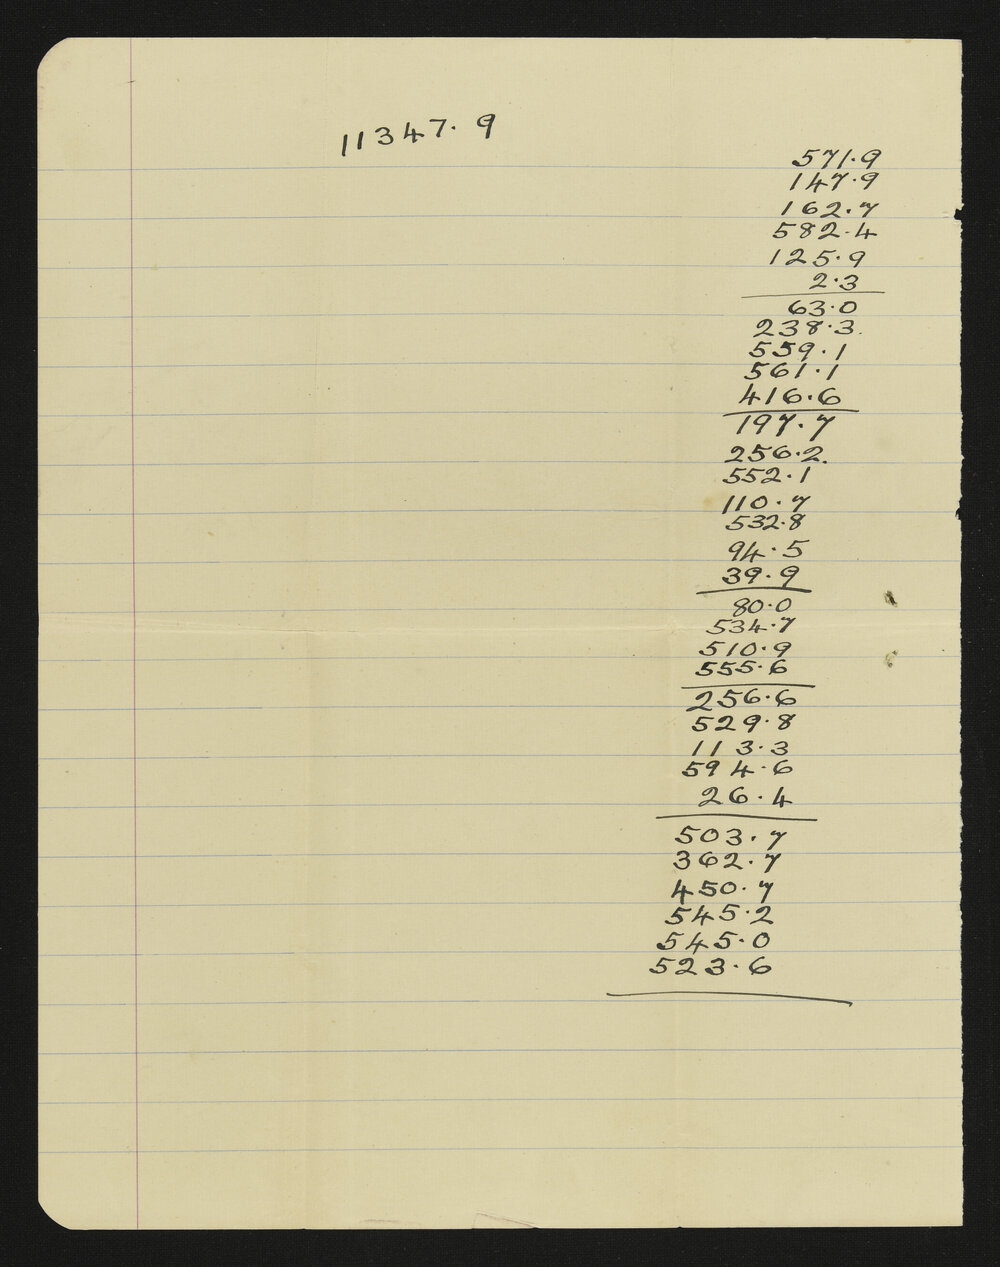 11347.9
571.9
147.9
162.7
582.4
125.9
2.3
63.0
238.3
559.1
561.1
416.6
197.7
256.2
552.1
110.7
532.8
94.5
39.9
80.0
534.7
510.9
555.6
256.6
529.8
113.3
594.6
26.4
503.7
362.7
450.7
545.2
545.0
523.6